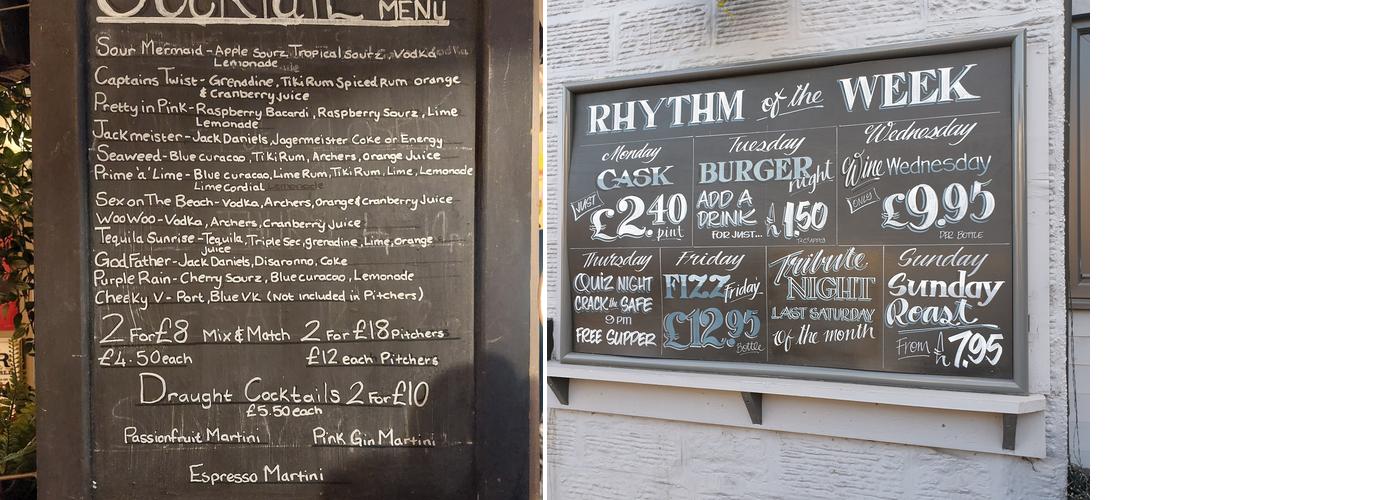 Cocktail MENU
Sour Mermaid - Apple Sourz, Tropical Sourz, Vodka
Lemonade
Captains Twist - Grenadine, Tiki Rum Spiced Rum orange
& Cranberry Juice
Pretty in Pink - Raspberry Bacardi, Raspberry Sourz, Lime
Lemonade
Jackmeister - Jack Daniels, Jagermeister Coke or Energy
Seaweed - Blue curacao, Tiki Rum, Archers, Orange Juice
Prime 'a' Lime - Blue curacao, Lime Rum, Tiki Rum, Lime, Lemonade
Lime Cordial Lemonade
Sex on The Beach - Vodka, Archers, Orange & Cranberry Juice
Woo Woo - Vodka, Archers, Cranberry Juice
Tequila Sunrise - Tequila, Triple Sec, grenadine, Lime, orange
juice
God Father - Jack Daniels, Disaronno, Coke
Purple Rain - Cherry Sourz, Blue curacao, Lemonade
Cheeky V - Port, Blue VK (Not included in Pitchers)
2 For £8 Mix & Match 2 For £18 Pitchers
£4.50 each £12 each Pitchers
Draught Cocktails 2 For £10
£5.50 each
Passionfruit Martini Pink Gin Martini
Espresso Martini
RHYTHM of the WEEK
Monday
CASK
JUST
£2.40
pint
Tuesday
BURGER
night
ADD A
DRINK
FOR JUST... £1.50
Wednesday
Wine Wednesday
ONLY
£9.95
PER BOTTLE
Thursday
QUIZ NIGHT
CRACK the SAFE
9pm
FREE SUPPER
Friday
FIZZ Friday
£12.95
Bottle
Tribute
NIGHT
LAST SATURDAY
of the month
Sunday
Sunday
Roast
From £7.95